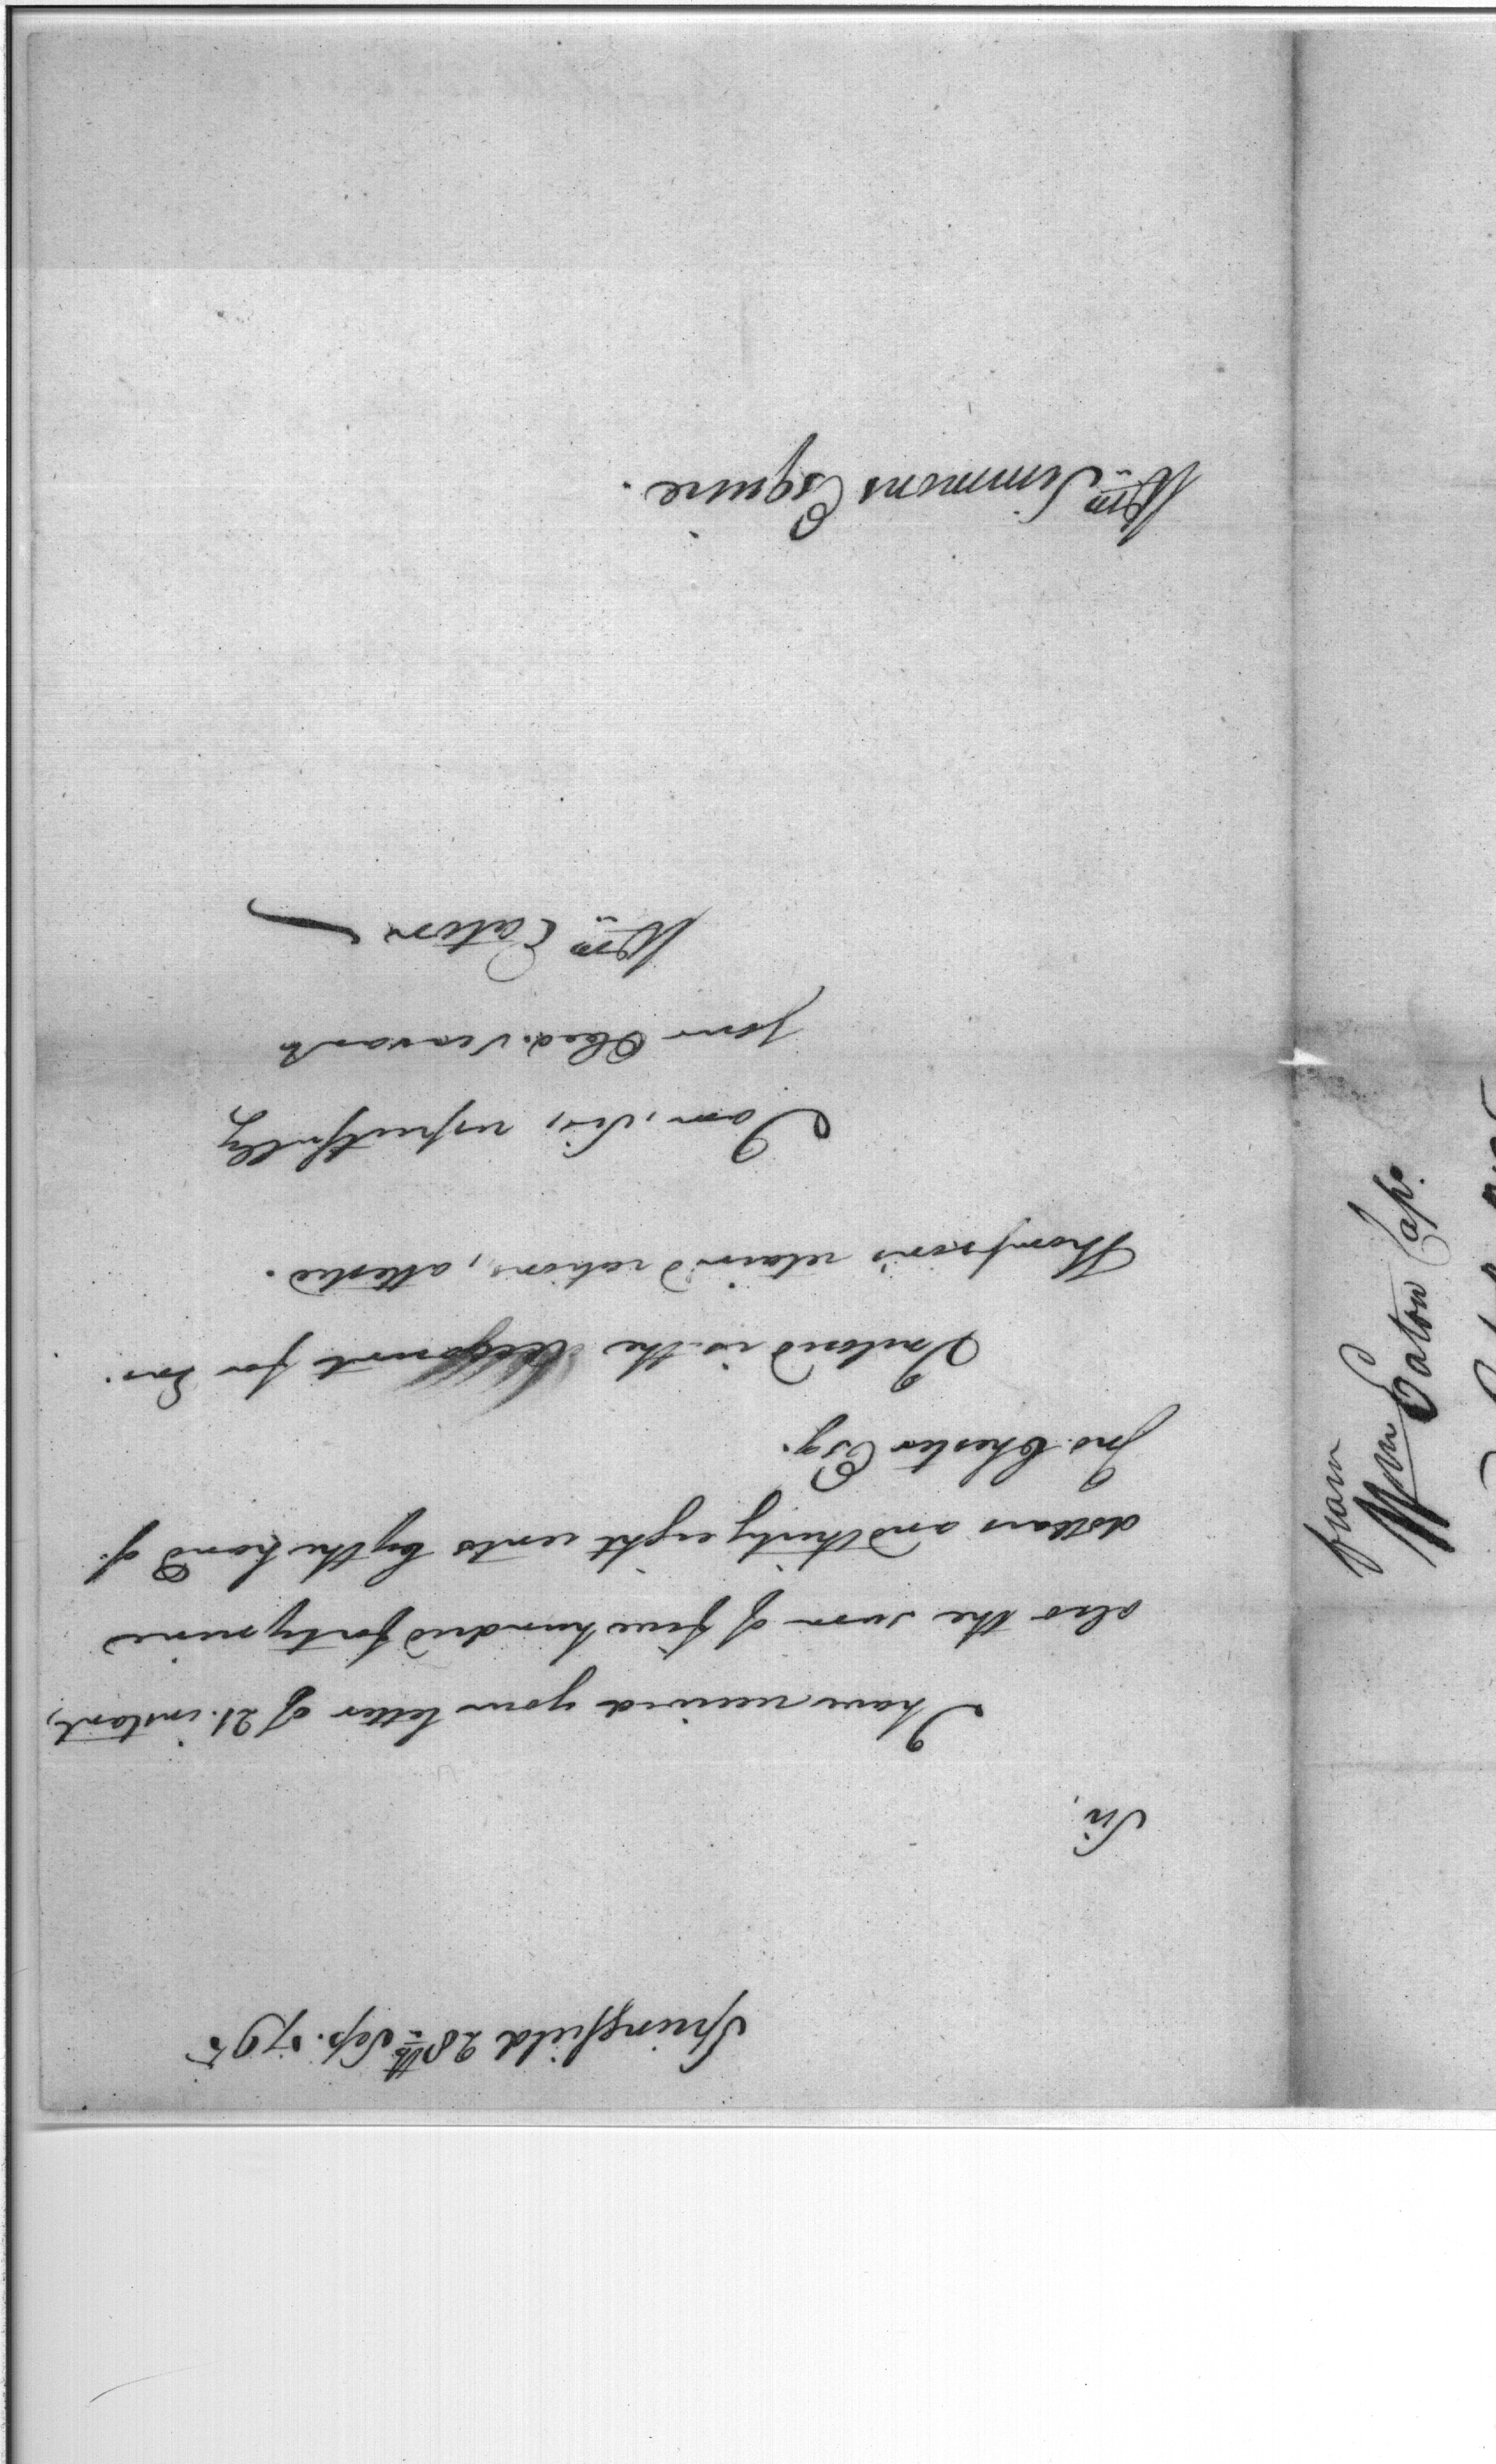 Springfield 28th Sep. 1795
Sir,
I have received your letter of 21. instant,
also the sum of five hundred forty nine
dollars and thirty eight cents by the hand of
Jno. Chester Esq.
Inclosed is the for Ens.
Thompson's retain'd rations, attested.
I am, Sir, respectfully
your Obed. Servant
Wm Eaton
Wm Simmons Esquire.
from
Wm Eaton Cap.